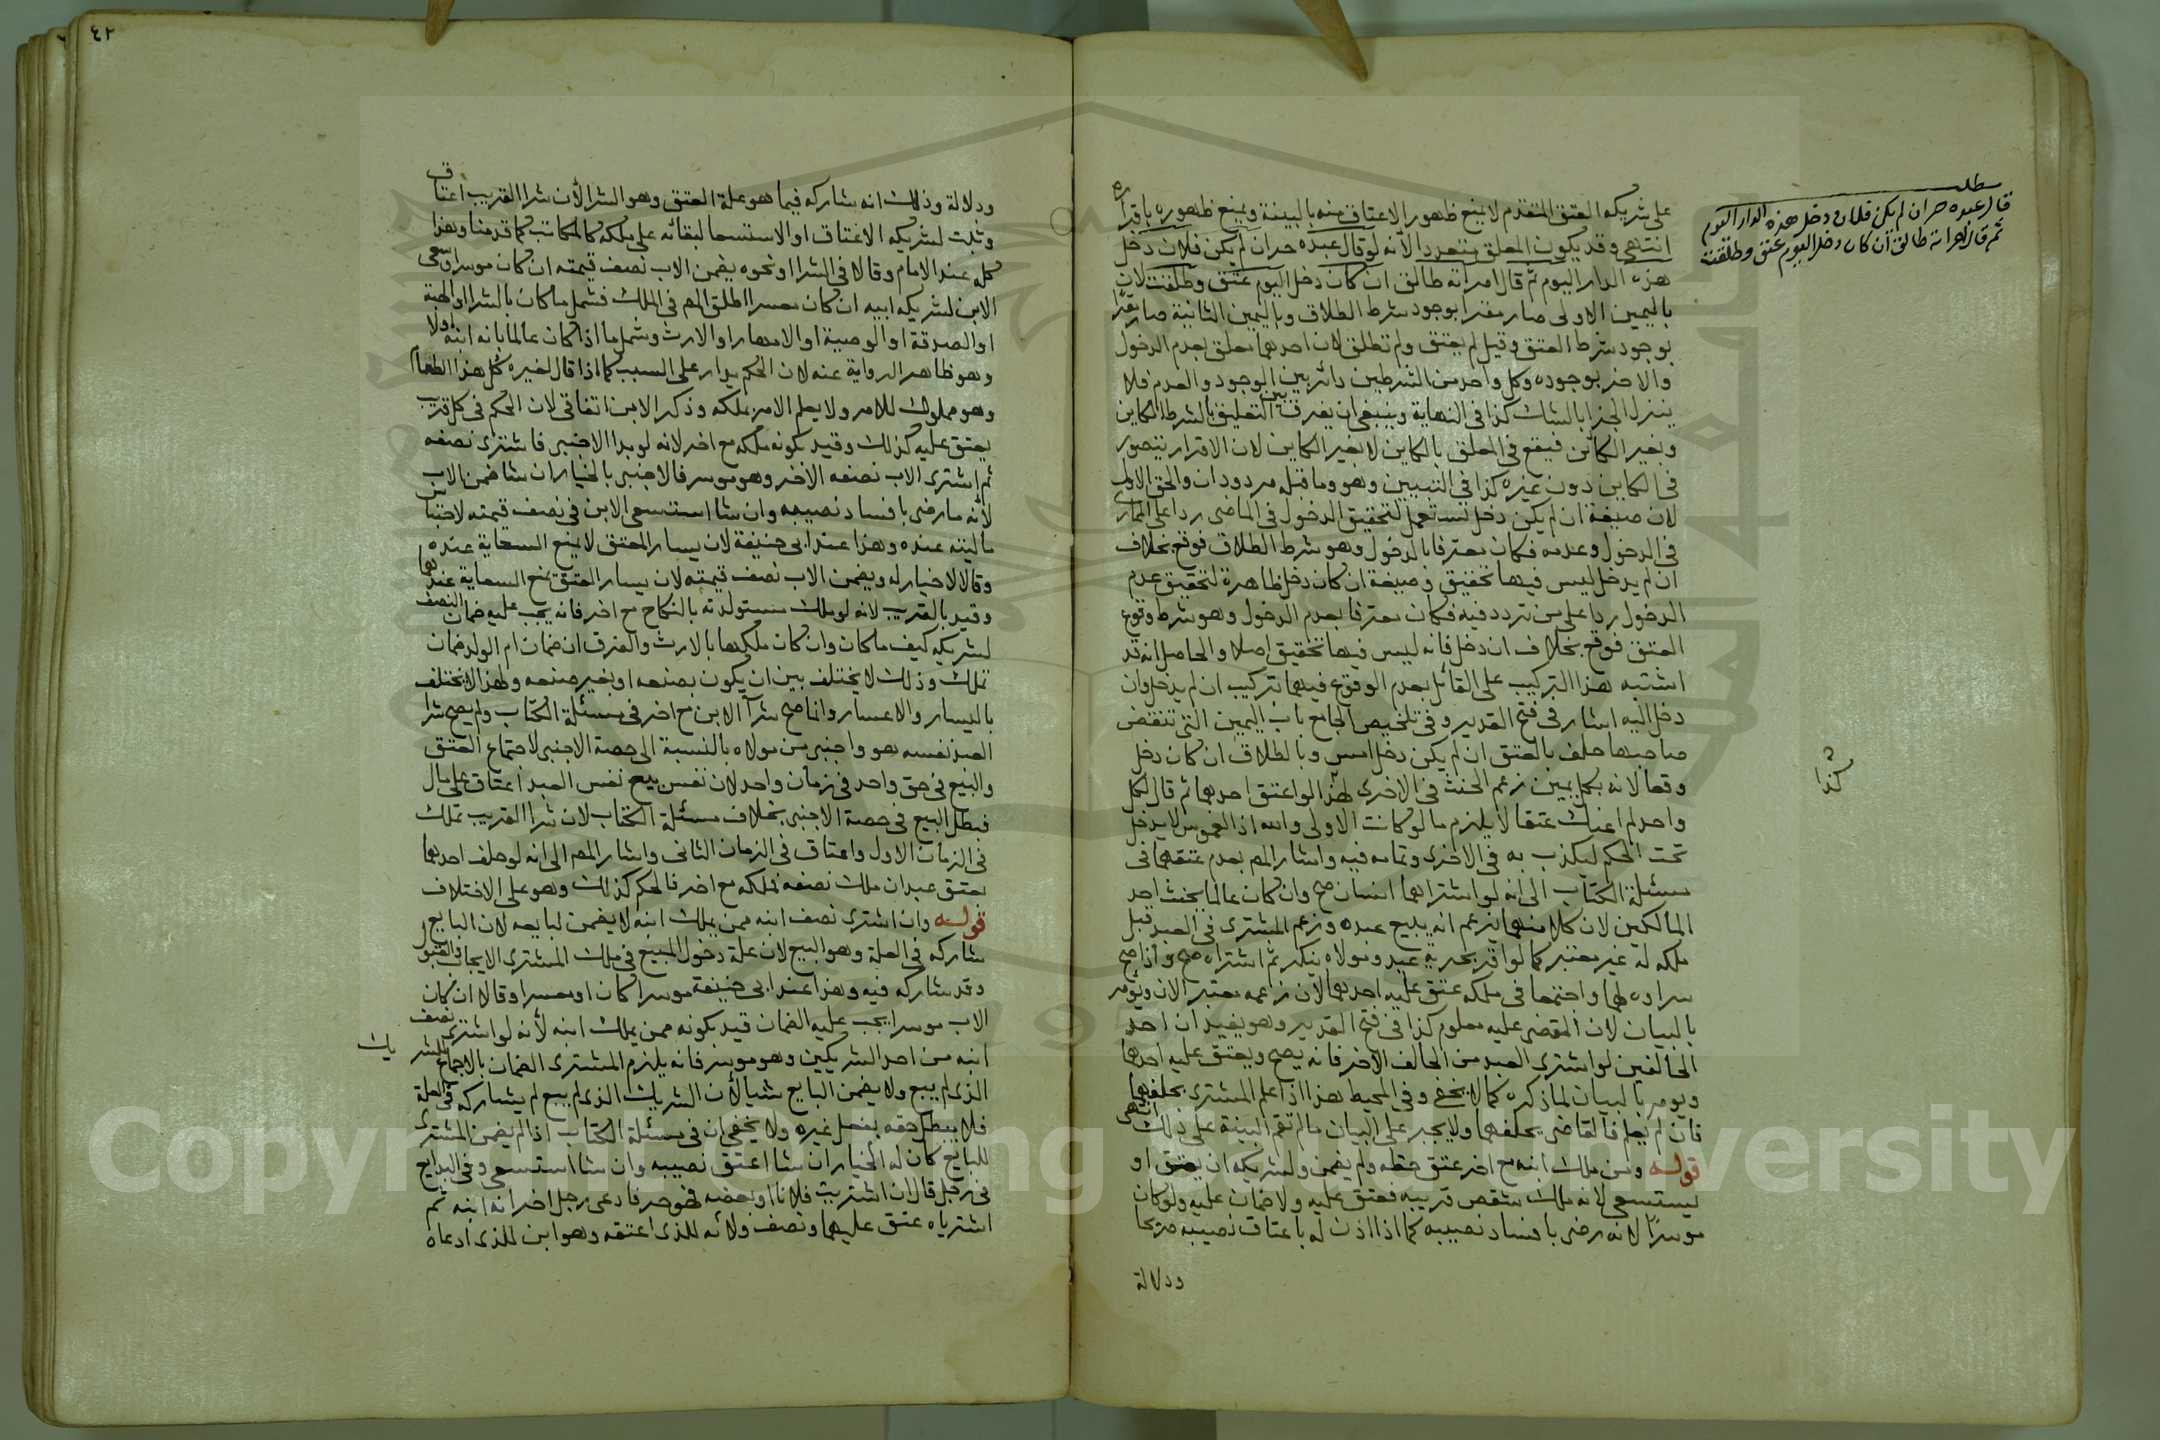 على شريكه العتق المتقدم لا يمنع ظهور الاعتاق منه بالبينة ويمنع ظهوره باقراره
انتهى وقد يكون المعلق متعددا لأنه لو قال عبده حران لم يكن فلان دخل
هذه الدار اليوم ثم قال امراته طالق ان كان دخل اليوم عتق وطلقت لان
باليمين الاولى صار مقرا بوجود شرط الطلاق وباليمين الثانية صار مقرا
بوجود شرط العتق وقيل لم يعتق ولم تطلق لان احدهما معلق بعدم الدخول
والاخر بوجوده وكل واحد من الشرطين دائر بين الوجود والعدم فلا
ينزل الجزا بالشك كذا في النهاية وينبغي ان يفرق بين التعليق بالشرط الكاين
وبغير الكائن فيقع في المعلق بالكاين لا بغير الكاين لان الاقرار يتصور
في الكاين دون غيره كذا في التبيين وهو وما قبله مردودان والحق الاول
لان صيغة ان لم يكن دخل تستعمل لتحقيق الدخول في الماضي ردا على الماري
في الدخول وعدمه فكان معترفا بالدخول وهو شرط الطلاق فوقع بخلاف
ان لم يدخل ليس فيها تحقيق وصيغة ان كان دخل ظاهرة لتحقيق عدم
الدخول ردا على من تردد فيه فكان معترفا بعدم الدخول وهو شرط وقوع
العتق فوقع بخلاف ان دخل فانه ليس فيها تحقيق اصلا والحاصل انه قد
اشتبه هذا التركيب على القائل بعدم الوقوع فيهما تركيب ان لم يدخل وان
دخل اليه اشار في فتح القدير وفي تلخيص الجامع باب اليمين التي تنقض
صاحبها حلف بالعتق ان لم يكن دخل امس وبالطلاق ان كان دخل
وقعا لانه بكل يمين زعم الحنث في الاخرى لهذا لو اعتق احدهما ثم قال لكل
واحد لم اعنك عتقا لا يلزم ما لو كانت الاولى والله اذ الغموس لا يدخل
تحت الحكم ليكذب به في الاخرى وتمامه فيه واشار المص بعدم عتقهما في
مسئلة الكتاب الى انه لو اشتراهما انسان صح وان كان عالما بحنث احد
المالكين لان كلا منهما يزعم انه يبيع عبده وزعم المشترى في العبد قبل
ملكه له غير معتبر كما لو اقر بحرية عبد ومولاه ينكر ثم اشتراه صح واذا صح
شراوه لهما واجتمعا في ملكه عتق عليه احدهما لان زعمه معتبر الان ويؤمر
بالبيان لان المقضى عليه معلوم كذا في فتح القدير وهو يفيد ان احد
الحالفين لو اشترى العبد من الحالف الاخر فانه يصح ويعتق عليه احدهما
ويومر بالبيان لما ذكره كما لا يخفى وفي المحيط هذا اذا علم المشترى بحلفهما
فان لم يعلم فالقاضي يحلفهما ولا يجبر على البيان ما لم تقم البينة على ذلك انتهى
قوله ومن ملك ابنه مع اخر عتق حظه ولم يضمن ولشريكه ان يعتق او
يستسعى لانه ملك شقص قريبه فعتق عليه ولا ضمان عليه ولو كان
موسرا لانه رضي بافساد نصيبه كما اذا اذن له باعتاق نصيبه صريحا
ودلالة
مطلب
قال عبده حر ان لم يكن فلان دخل هذه الدار اليوم
ثم قال امراته طالق ان كان دخل اليوم عتق وطلقت
كذا
٤٢
ودلالة وذلك انه شاركه فيما هو علة العتق وهو الشرا لأن شرا القريب اعتاق
وثبت لشريكه الاعتاق او الاستسعا لبقائه على ملكه كالمكاتب كما قدمنا وهذا
كله عند الامام وقالا في الشرا ونحوه يضمن الاب نصف قيمته ان كان موسرا وسعى
الابن لشريكه ابيه ان كان معسرا اطلق المص في الملك فشمل ما كان بالشرا او الهبة
او الصدقة او الوصية او الامهار او الارث وشمل ما اذا كان عالما بانه ابنه اولا
وهو ظاهر الرواية عنه لان الحكم يدار على السبب كما اذا قال لغيره كل هذا الطعام
وهو مملوك للامر ولا يعلم الامر بملكه وذكر الابن اتفاقي لان الحكم في كل قريب
يعتق عليه كذلك وقيد بكونه ملكه مع اخر لانه لو بدا الاجنبي فاشترى نصفه
ثم اشترى الاب نصفه الاخر وهو موسر فالاجنبي بالخيار ان شا ضمن الاب
لأنه ما رضي بافساد نصيبه وان شا استسعى الابن في نصف قيمته لاحتباس
ماليته عنده وهذا عند ابي حنيفة لان يسار المعتق لا يمنع السعاية عنده
وقالا لا خيار له ويضمن الاب نصف قيمته لان يسار المعتق يمنع السعاية عندهما
وقيد بالقريب لانه لو ملك مستولدته بالنكاح مع اخر فانه يجب عليه ضمان النصف
لشريكه كيف ما كان وان كان ملكها بالارث والفرق ان ضمان ام الولد ضمان
تملك وذلك لا يختلف بين ان يكون بصنعه او بغير صنعه ولهذا لا يختلف
باليسار والاعسار وانما صح شرآ الابن مع اخر في مسئلة الكتاب ولم يصح شرا
العبد نفسه هو واجنبي من مولاه بالنسبة الى حصة الاجنبي لاجتماع العتق
والبيع في حق واحد في زمان واحد لان نفس بيع نفس العبد اعتاق على مال
فبطل البيع في حصة الاجنبي بخلاف مسئلة الكتاب لان شرا القريب تملك
في الزمان الاول واعتاق في الزمان الثاني واشار المص الى انه لو حلف احدهما
بعتق عبد ان ملك نصفه فملكه مع اخر فالحكم كذلك وهو على الاختلاف
قوله وان اشترى نصف ابنه ممن يملك ابنه لا يضمن لبايعه لان البايع
شاركه في العلة وهو البيع لان علة دخول المبيع في ملك المشترى الايجاب والقبول
وقد شاركه فيه وهذا عند ابي حنيفة موسرا كان او معسرا وقالا ان كان
الاب موسرا يجب عليه الضمان قيد بكونه ممن يملك ابنه لأنه لو اشترى نصف
ابنه من احد الشريكين وهو موسر فانه يلزم المشترى الضمان بالاجماع للشريك
الذي لم يبع ولا يضمن البايع شيا لأن الشريك الذي لم يبع لم يشاركه في العلة
فلا يبطل حقه بفعل غيره ولا يخفى ان في مسئلة الكتاب اذا لم يضمن المشترى
للبايع كان له الخيار ان شا اعتق نصيبه وان شا استسعى وفي البدايع
في رجل قال ان اشتريت فلانا او بعضه فهو حر فادعى رجل اخر انه ابنه ثم
اشترياه عتق عليهما ونصف ولائه للذي اعتقه وهو ابن للذي ادعاه
Copyright © King Saud University